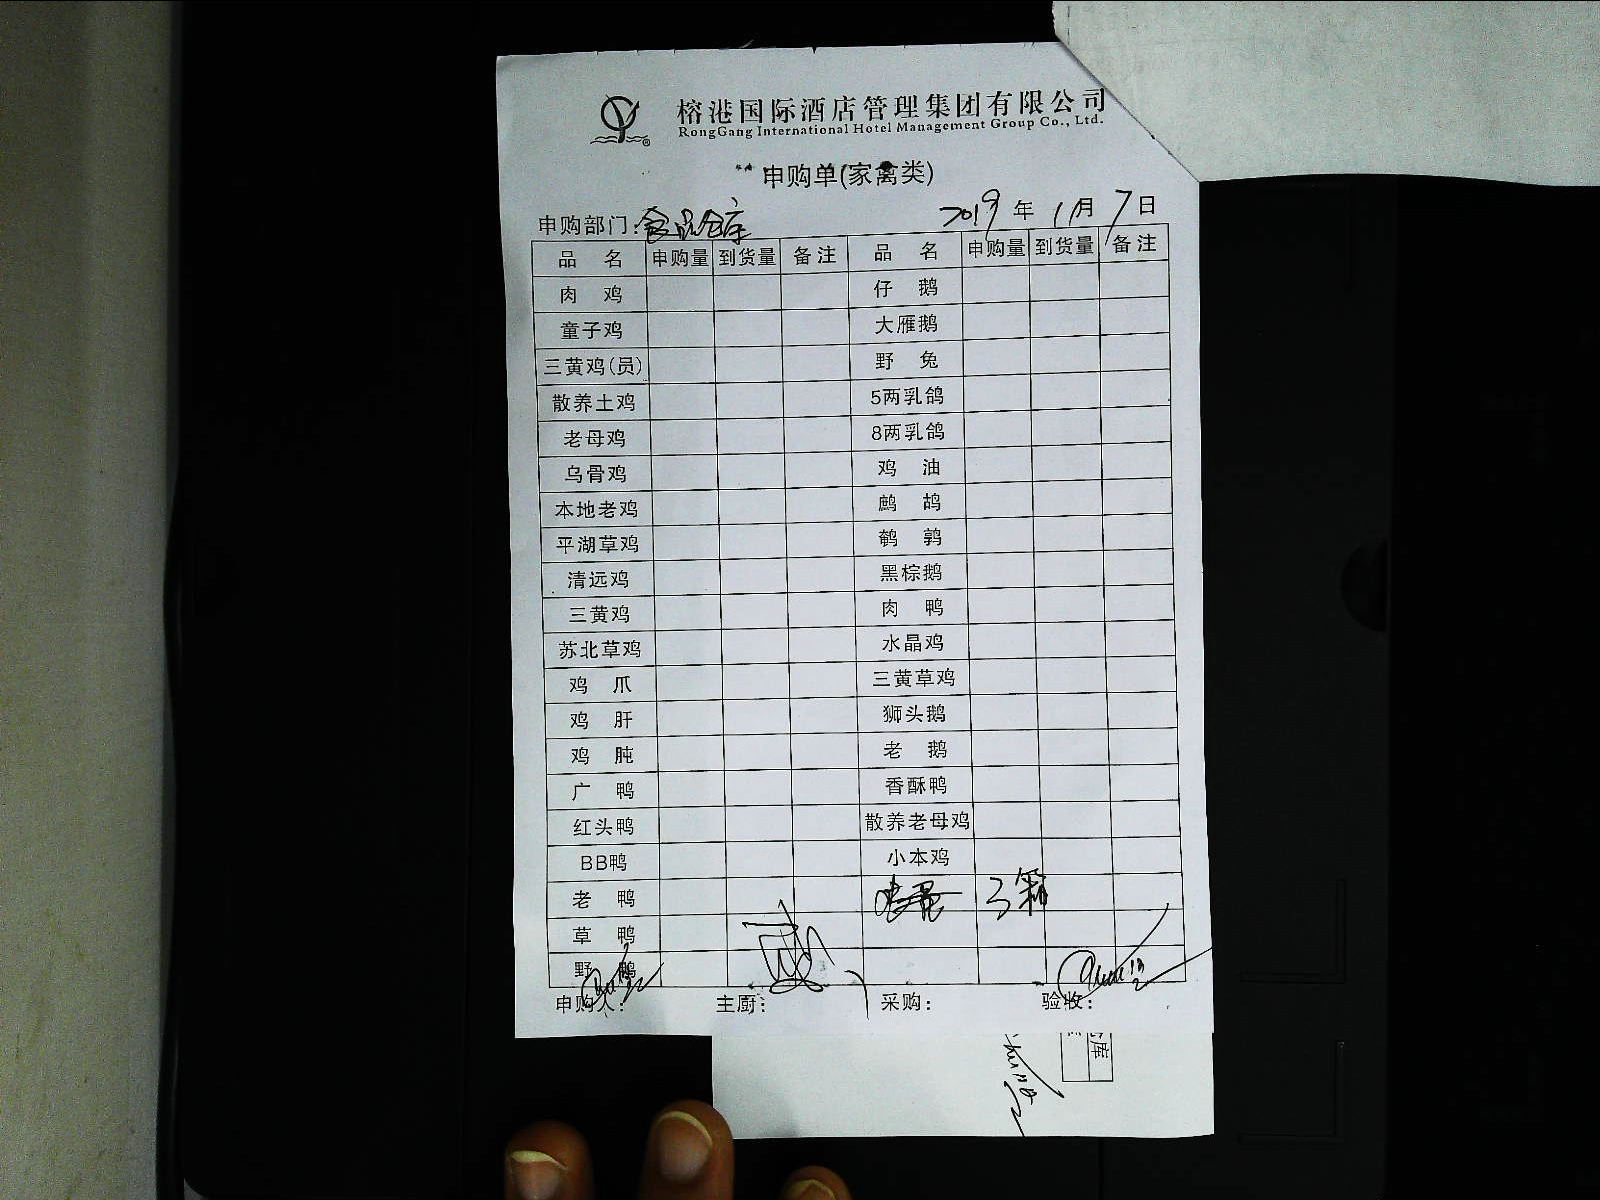 榕港国际酒店管理集团有限公司
RongGang International Hotel Management Group Co., Ltd.
申购单(家禽类)
申购部门:食品仓库 2019年11月7日
品名 申购量 到货量 备注 品名 申购量 到货量 备注
肉鸡 仔鹅
童子鸡 大雁鹅
三黄鸡(员) 野兔
散养土鸡 5两乳鸽
老母鸡 8两乳鸽
乌骨鸡 鸡油
本地老鸡 鹧鸪
平湖草鸡 鹌鹑
清远鸡 黑棕鹅
三黄鸡 肉鸭
苏北草鸡 水晶鸡
鸡爪 三黄草鸡
鸡肝 狮头鹅
鸡肫 老鹅
广鸭 香酥鸭
红头鸭 散养老母鸡
BB鸭 小本鸡
老鸭 3箱
草鸭
野鸭
申购人: 主厨: 采购: 验收:
库